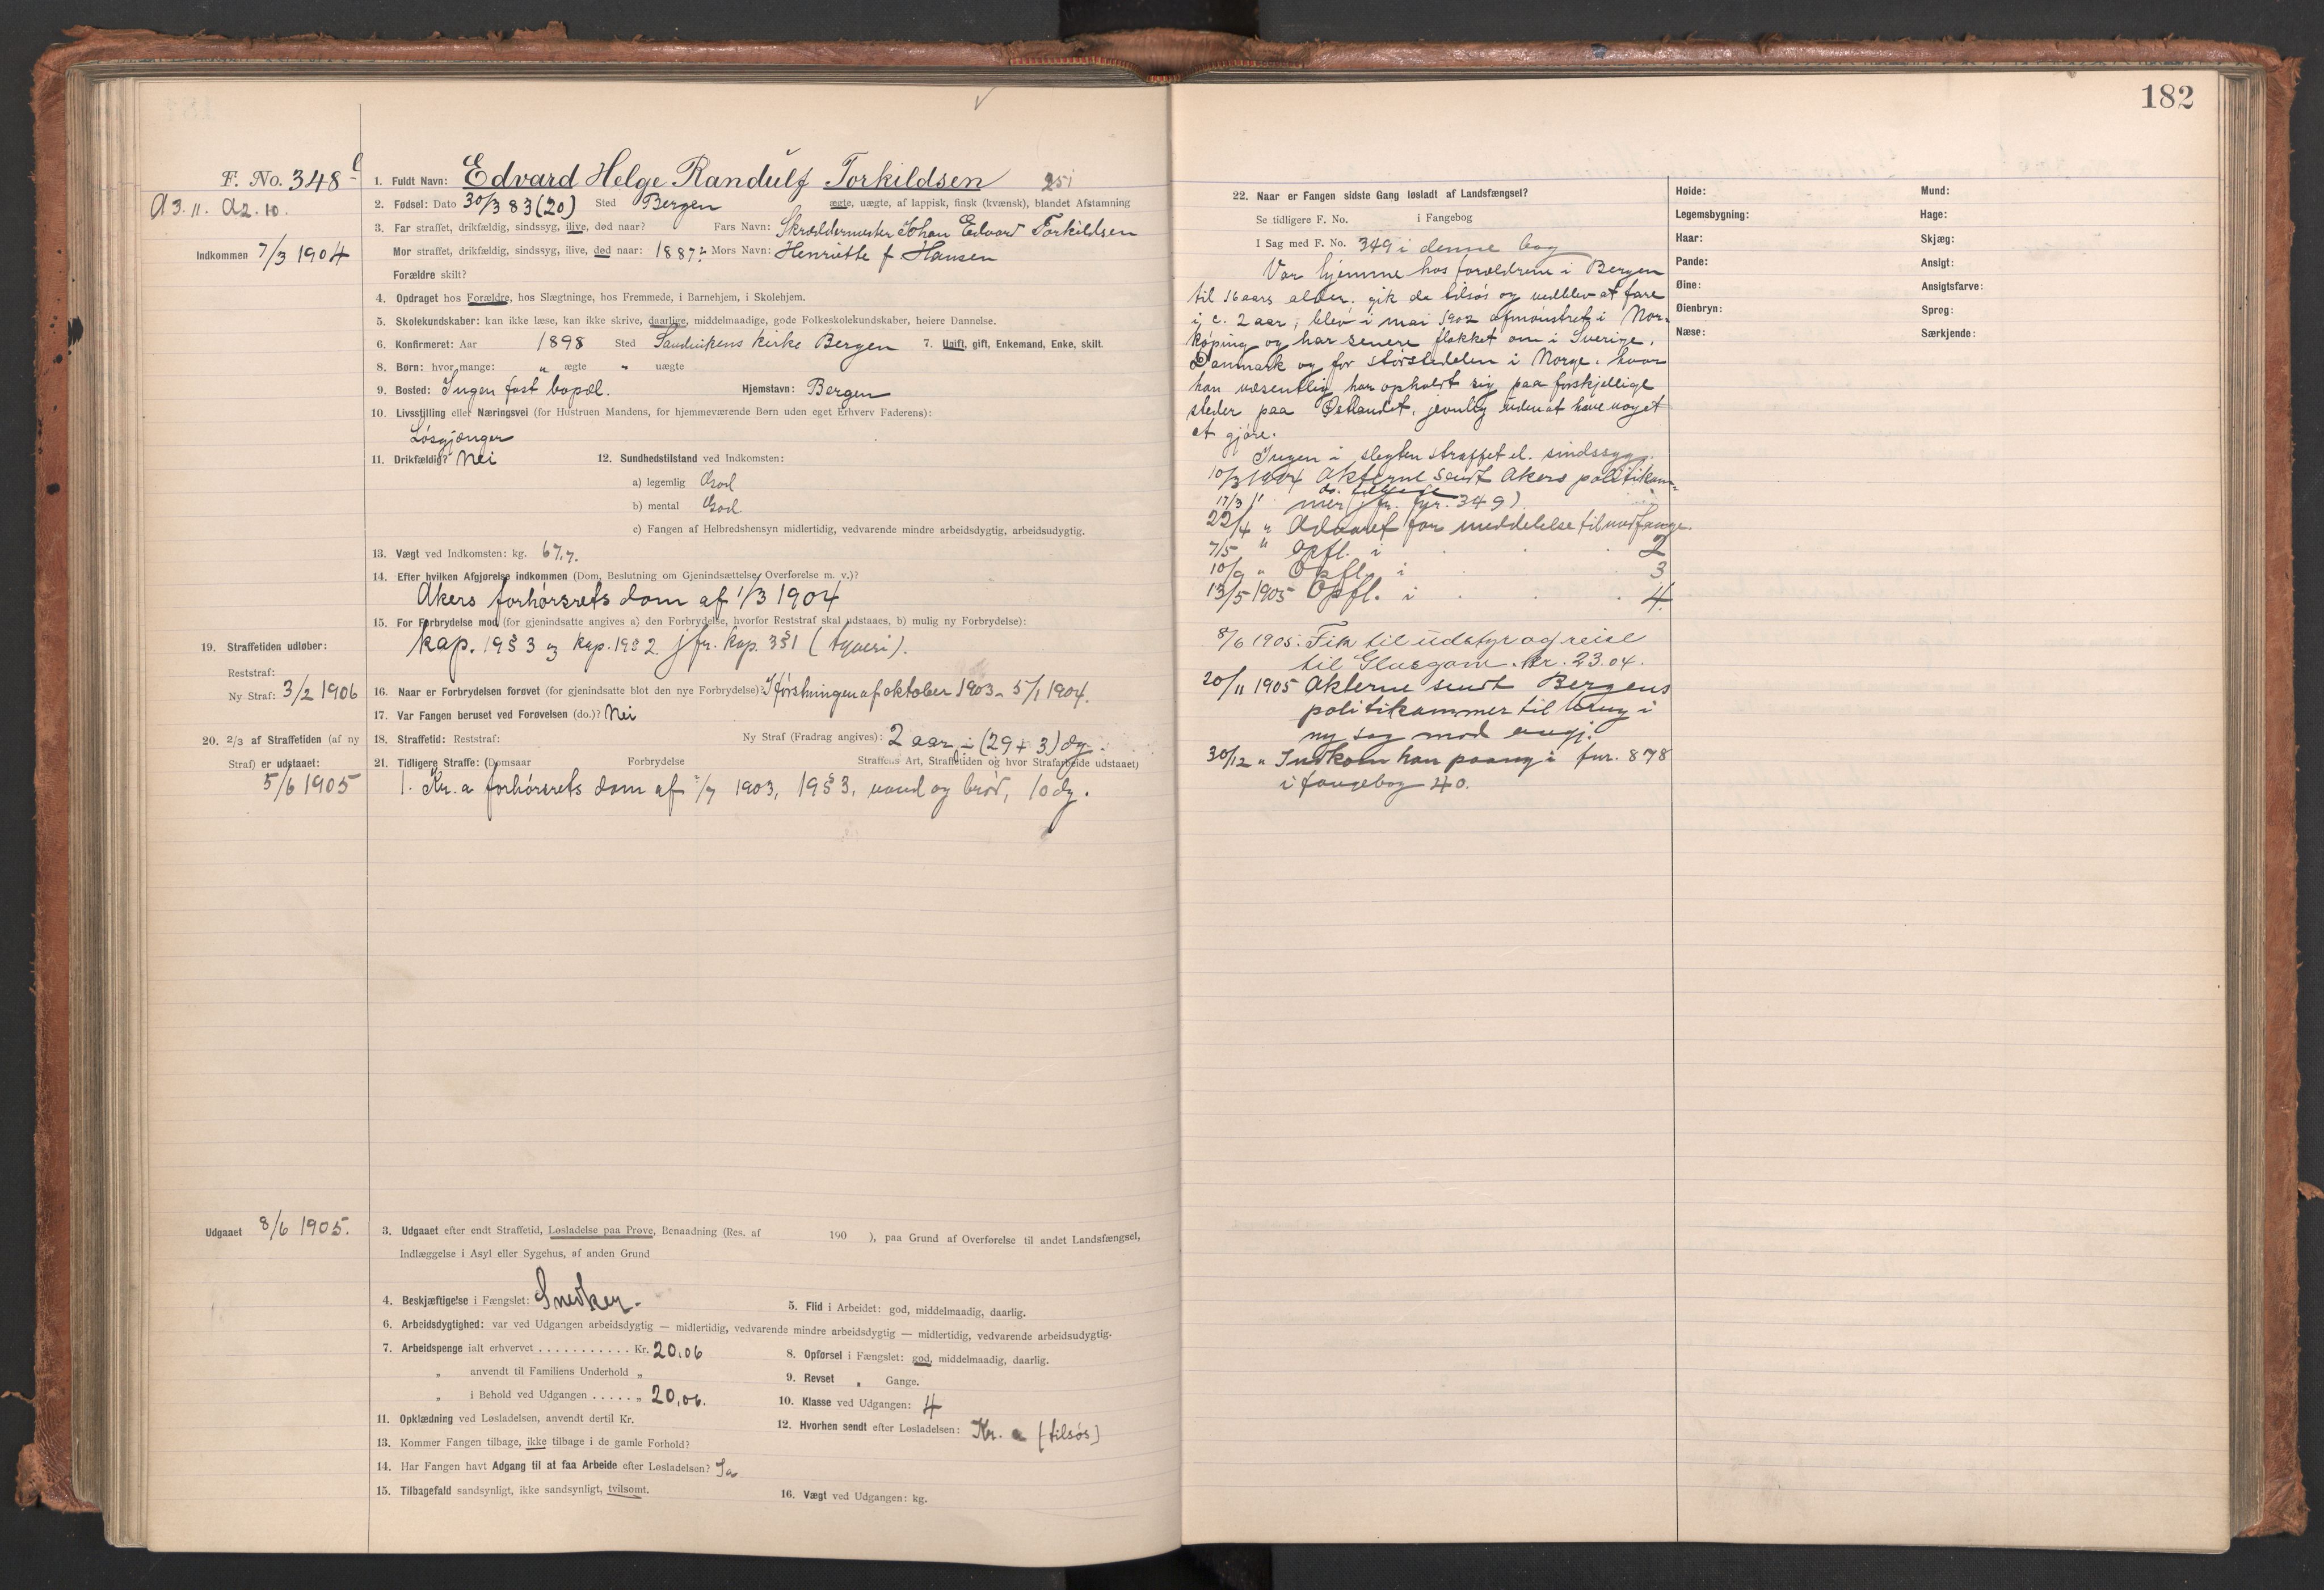 182
F. No. 348
A 3. 11. A 2. 10.
Indkommen 7/3 1904
1. Fuldt Navn: Edvard Helge Randulf Torkildsen 251
2. Fødsel: Dato 30/3 83 (20) Sted Bergen ægte, uægte, af lappisk, finsk (kvænsk), blandet Afstamning
3. Far straffet, drikfældig, sindssyg, ilive, død naar? Fars Navn: Skræddermester Johan Edvard Torkildsen
Mor straffet, drikfældig, sindssyg, ilive, død naar: 1887? Mors Navn: Henriette f Hansen
Forældre skilt?
4. Opdraget hos Forældre, hos Slægtninge, hos Fremmede, i Barnehjem, i Skolehjem.
5. Skolekundskaber: kan ikke læse, kan ikke skrive, daarlige, middelmaadige, gode Folkeskolekundskaber, høiere Dannelse.
6. Konfirmeret: Aar 1898 Sted Sandvikens kirke Bergen 7. Ugift, gift, Enkemand, Enke, skilt.
8. Børn: hvor mange: " ægte " uægte
9. Bosted: Ingen fast bopæl. Hjemstavn: Bergen
10. Livsstilling eller Næringsvei (for Hustruen Mandens, for hjemmeværende Børn uden eget Erhverv Faderens):
Løsgjænger
11. Drikfældig? Nei 12. Sundhedstilstand ved Indkomsten:
a) legemlig God
b) mental God
c) Fangen af Helbredshensyn midlertidig, vedvarende mindre arbeidsdygtig, arbeidsudygtig.
13. Vægt ved Indkomsten: kg. 67,7.
14. Efter hvilken Afgjørelse indkommen (Dom, Beslutning om Gjenindsættelse, Overførelse m. v.)?
Akers forhørsrets dom af 1/3 1904
15. For Forbrydelse mod (for gjenindsatte angives a) den Forbrydelse, hvorfor Reststraf skal udstaaes, b) mulig ny Forbrydelse):
kap. 19 § 3 og kap. 19 § 2 jfr. kap. 3 § 1 (tyveri).
19. Straffetiden udløber:
Reststraf:
Ny Straf: 3/2 1906
16. Naar er Forbrydelsen forøvet (for gjenindsatte blot den nye Forbrydelse)? I førstningen af oktober 1903 - 5/1 1904.
17. Var Fangen beruset ved Forøvelsen (do.)? Nei
20. 2/3 af Straffetiden (af ny
Straf) er udstaaet:
5/6 1905
18. Straffetid: Reststraf: Ny Straf (Fradrag angives): 2 aar ÷ (29 + 3) dg.
21. Tidligere Straffe: (Domsaar Forbrydelse Straffens Art, Straffetiden og hvor Strafarbeide udstaaet)
1. Kr.a forhørsrets dom af 2/7 1903, 19 § 3, vand og brød, 10 dg.
Udgaaet 8/6 1905.
3. Udgaaet efter endt Straffetid, Løsladelse paa Prøve, Benaadning (Res. af 190 ), paa Grund af Overførelse til andet Landsfængsel,
Indlæggelse i Asyl eller Sygehus, af anden Grund
4. Beskjæftigelse i Fængslet: Snedker. 5. Flid i Arbeidet: god, middelmaadig, daarlig.
6. Arbeidsdygtighed: var ved Udgangen arbeidsdygtig — midlertidig, vedvarende mindre arbeidsdygtig — midlertidig, vedvarende arbeidsudygtig.
7. Arbeidspenge ialt erhvervet ........... Kr. 20.06 8. Opførsel i Fængslet: god, middelmaadig, daarlig.
" anvendt til Familiens Underhold " 9. Revset " Gange.
" i Behold ved Udgangen ..... " 20,06. 10. Klasse ved Udgangen: 4
11. Opklædning ved Løsladelsen, anvendt dertil Kr. 12. Hvorhen sendt efter Løsladelsen: Kr.a (tilsøs)
13. Kommer Fangen tilbage, ikke tilbage i de gamle Forhold?
14. Har Fangen havt Adgang til at faa Arbeide efter Løsladelsen? Ja
15. Tilbagefald sandsynligt, ikke sandsynligt, tvilsomt. 16. Vægt ved Udgangen: kg.
22. Naar er Fangen sidste Gang løsladt af Landsfængsel?
Se tidligere F. No. i Fangebog
I Sag med F. No. 349 i denne bog
Var hjemme hos forældrene i Bergen
til 16 aars alder. gik da tilsøs og vedblev at fare
i c. 2 aar, blev i mai 1902 afmønstret i Nor-
køping og har senere flakket om i Sverige,
Danmark og for størstedelen i Norge, hvor
han væsentlig har opholdt sig paa forskjellige
steder paa Østlandet, jevnlig uden at have noget
at gjøre.
Ingen i slegten straffet el. sindssyg.
10/3 1904 Akterne sendt Akers politikam-
17/3 " mer (jfr. fnr. 349)
22/4 " Advaret for meddelelse til medfange.
7/5 " Opfl. i . . . 2
10/9 " Opfl. i . . . 3
13/5 1905 Opfl. i . . . 4.
8/6 1905: Fik til udstyr og reise
til Glasgow. Kr. 23.04.
20/11 1905 Akterne sendt Bergens
politikammer til brug i
ny sag mod angj.
30/12 " Indkom han paany i fnr. 878
i fangebog 40.
Høide:
Legemsbygning:
Haar:
Pande:
Øine:
Øienbryn:
Næse:
Mund:
Hage:
Skjæg:
Ansigt:
Ansigtsfarve:
Sprog:
Særkjende: